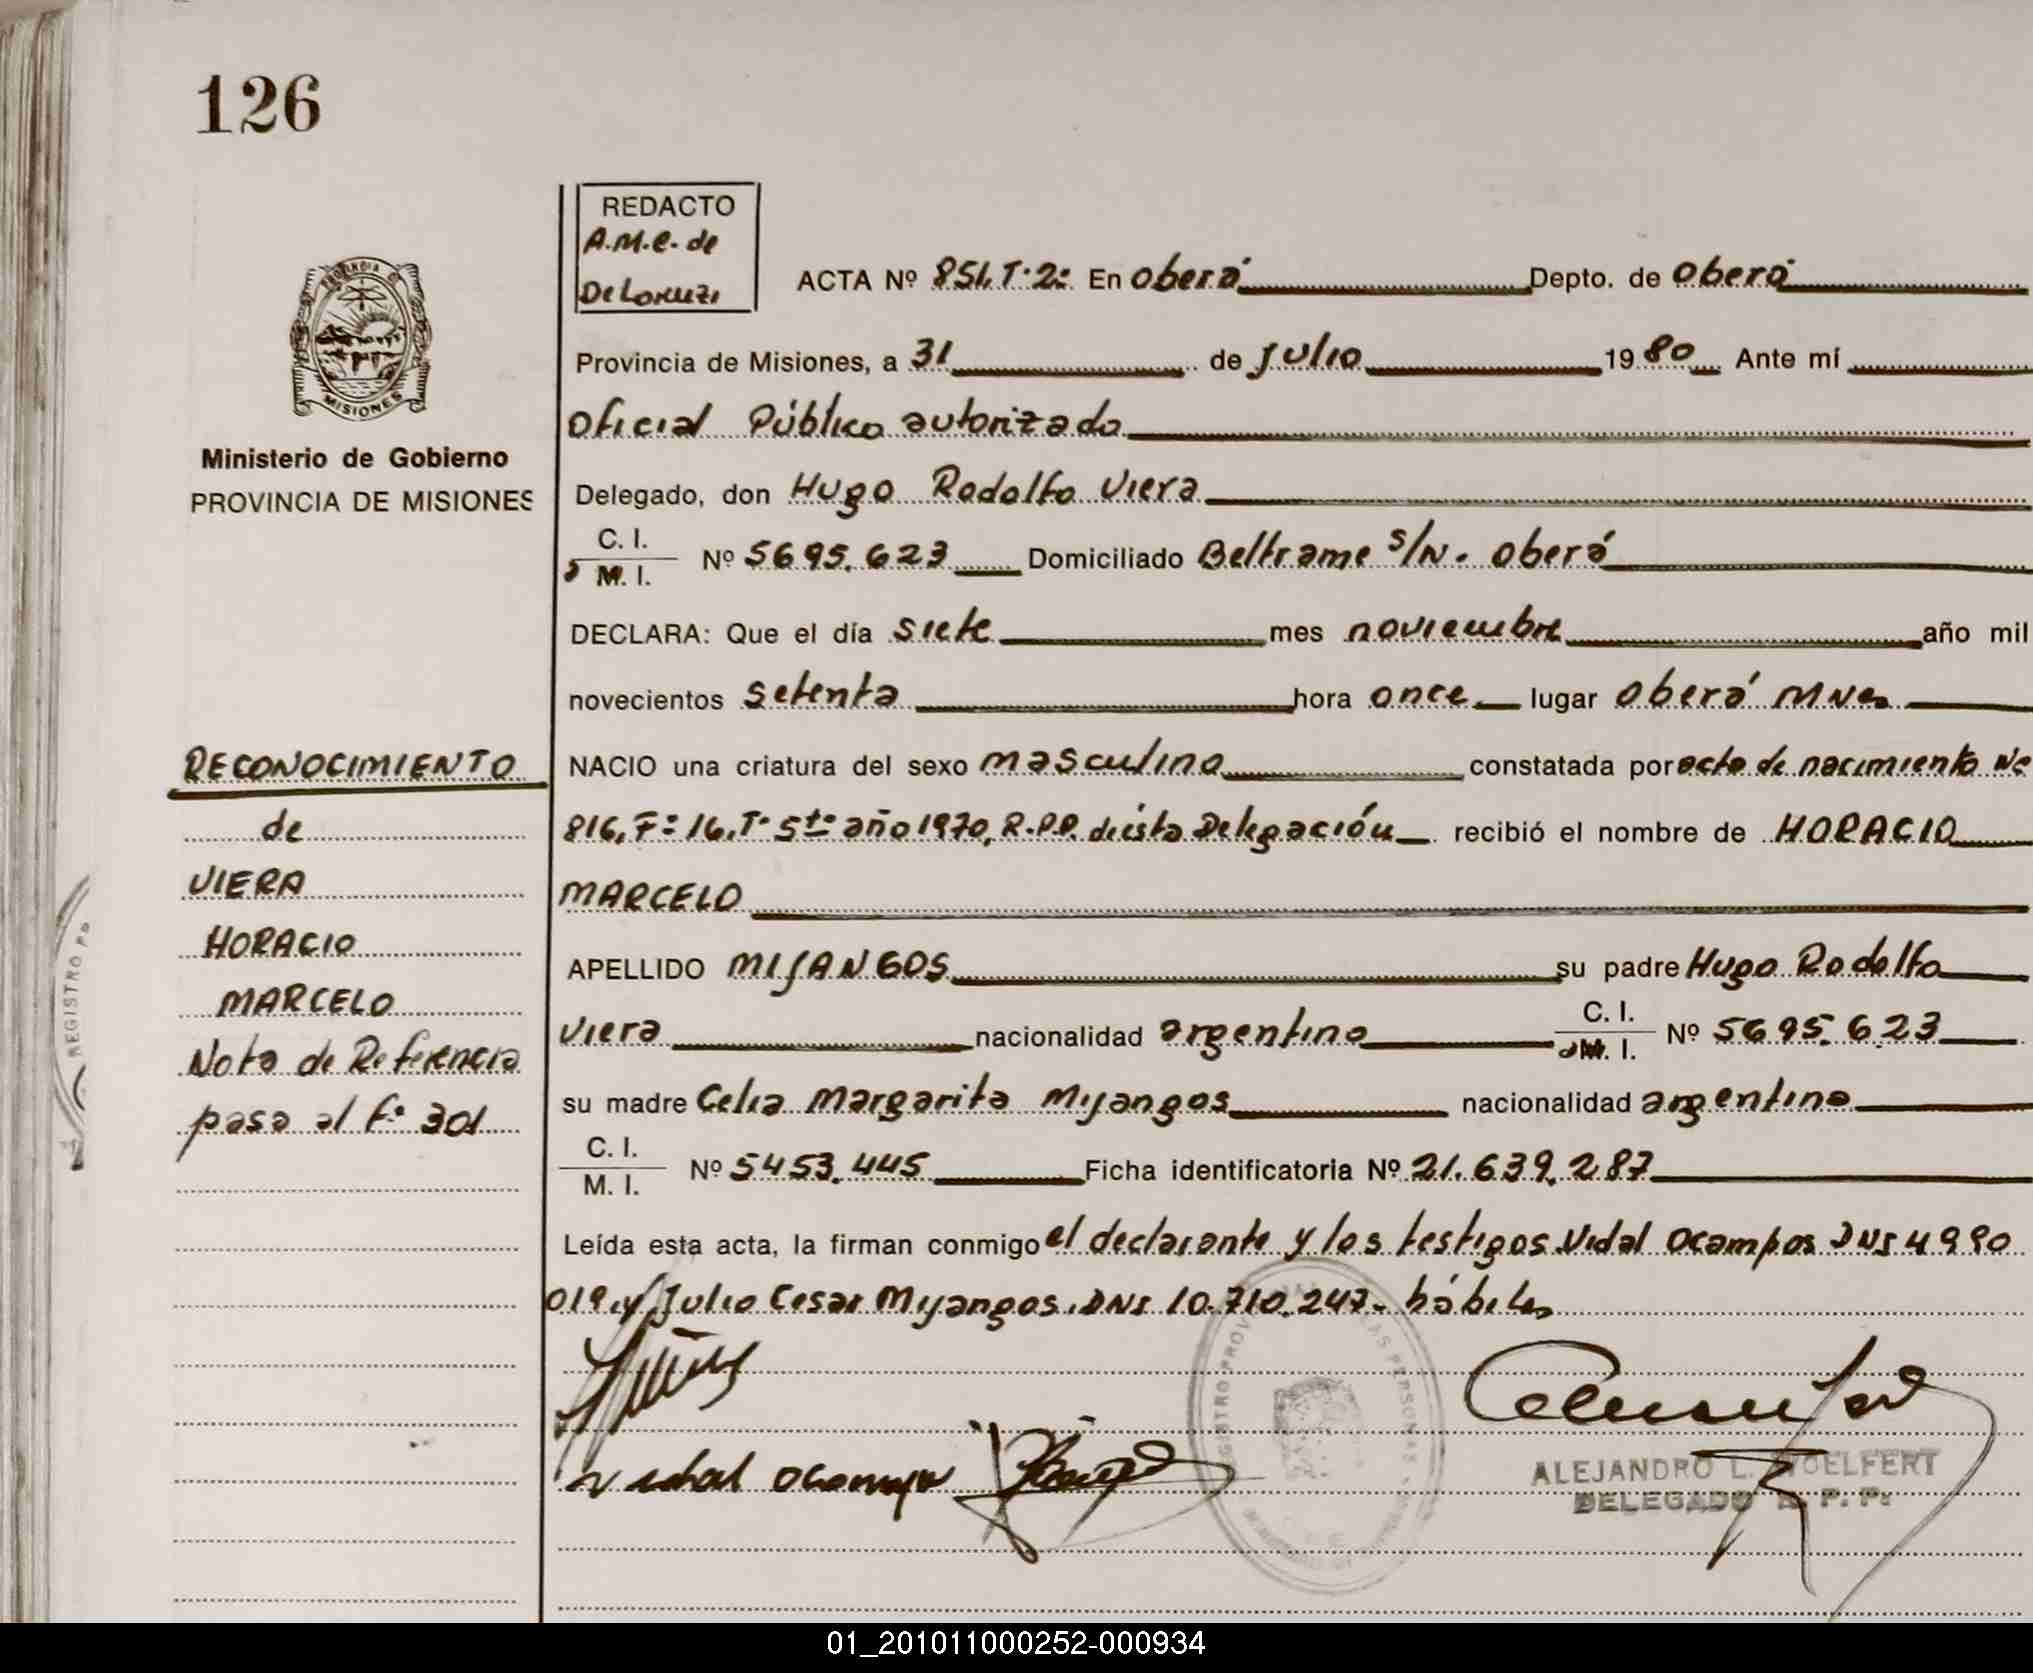 126
REDACTO
A.M.C. de
De Lorenzi
ACTA Nº 851, Tº 2º En Oberá Depto. de Oberá
Provincia de Misiones, a 31 de Julio 1980 Ante mí
Oficial Público autorizado
Delegado, don Hugo Rodolfo Viera
C. I.
M. I. Nº 5695.623 Domiciliado Beltrame s/N. Oberá
DECLARA: Que el día siete mes noviembre año mil
novecientos setenta hora once lugar Oberá Mnes
NACIO una criatura del sexo masculino constatada por acta de nacimiento Nº
816, Fº 16, Tº 5to año 1970, R.P.P. de ésta Delegación recibió el nombre de HORACIO
MARCELO
APELLIDO MIJANGOS su padre Hugo Rodolfo
Viera nacionalidad argentino C. I.
M. I. Nº 5695.623
su madre Celia Margarita Mijangos nacionalidad argentina
C. I.
M. I. Nº 5453.445 Ficha identificatoria Nº 21.639.287
Leída esta acta, la firman conmigo el declarante y los testigos Vidal Ocampos DNI 4990
019 y Julio Cesar Mijangos DNI 10.710.247- hábiles
Vidal Ocampos
ALEJANDRO L. WOELFERT
DELEGADO R. P. P.
PROVINCIA DE
MISIONES
Ministerio de Gobierno
PROVINCIA DE MISIONES
RECONOCIMIENTO
de
VIERA
HORACIO
MARCELO
Nota de Referencia
pasa al Fº 301
REGISTRO
REGISTRO PROV LAS PERSONAS
01_201011000252-000934